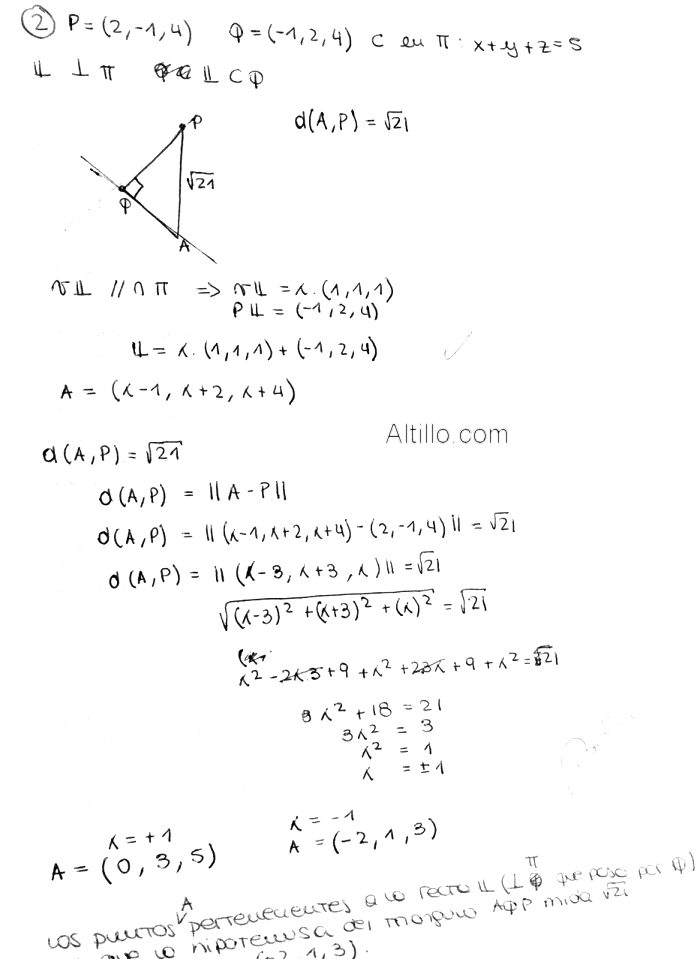 ② P = (2,-1,4) Q = (-1,2,4) C en π: x+y+z=5
𝕃 ⊥ π 𝕃 C Q
d(A,P) = √21
P
√21
Q
A
v𝕃 // n π => v𝕃 = λ.(1,1,1)
P𝕃 = (-1,2,4)
𝕃 = λ.(1,1,1) + (-1,2,4)
A = (λ-1, λ+2, λ+4)
Altillo.com
d(A,P) = √21
d(A,P) = ||A-P||
d(A,P) = ||(λ-1,λ+2,λ+4) - (2,-1,4)|| = √21
d(A,P) = ||(λ-3, λ+3, λ)|| = √21
√((λ-3)² + (λ+3)² + (λ)²) = √21
λ² - 2λ3 + 9 + λ² + 23λ + 9 + λ² = 21
3λ² + 18 = 21
3λ² = 3
λ² = 1
λ = ±1
λ = +1
A = (0, 3, 5)
λ = -1
A = (-2, 1, 3)
Los puntos A pertenecientes a la recta 𝕃 (⊥ π que pasa por Q)
que la hipotenusa del triangulo AQP mida √21
(-2, 1, 3).